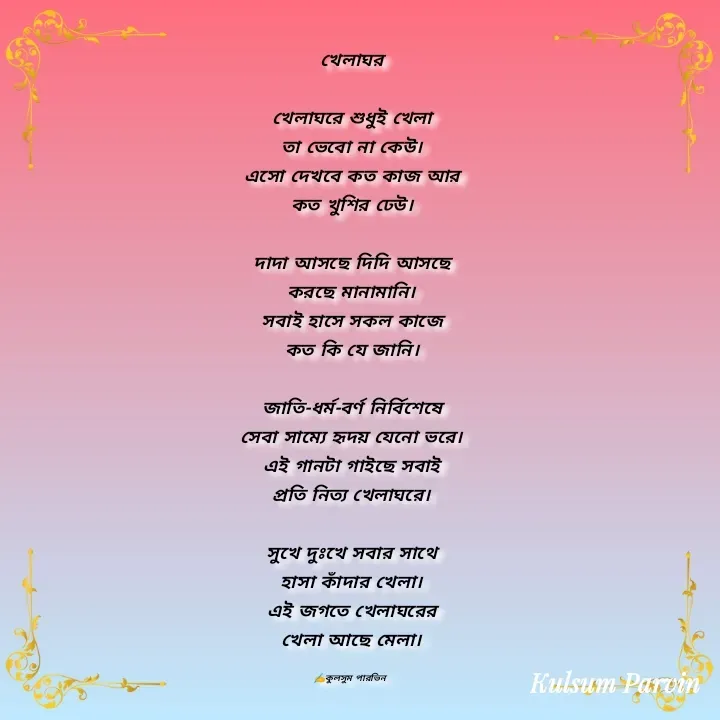 খেলাঘর
খেলাঘরে শুধুই খেলা
তা ভেবো না কেউ।
এসো দেখবে কত কাজ আর
কত খুশির ঢেউ।
দাদা আসছে দিদি আসছে
করছে মানামানি।
সবাই হাসে সকল কাজে
কত কি যে জানি।
জাতি-ধর্ম-বর্ণ নির্বিশেষে
সেবা সাম্যে হৃদয় যেনো ভরে।
এই গানটা গাইছে সবাই
প্রতি নিত্য খেলাঘরে।
সুখে দুঃখে সবার সাথে
হাসা কাঁদার খেলা।
এই জগতে খেলাঘরের
খেলা আছে মেলা।
✍️কুলসুম পারভিন
Kulsum Parvin